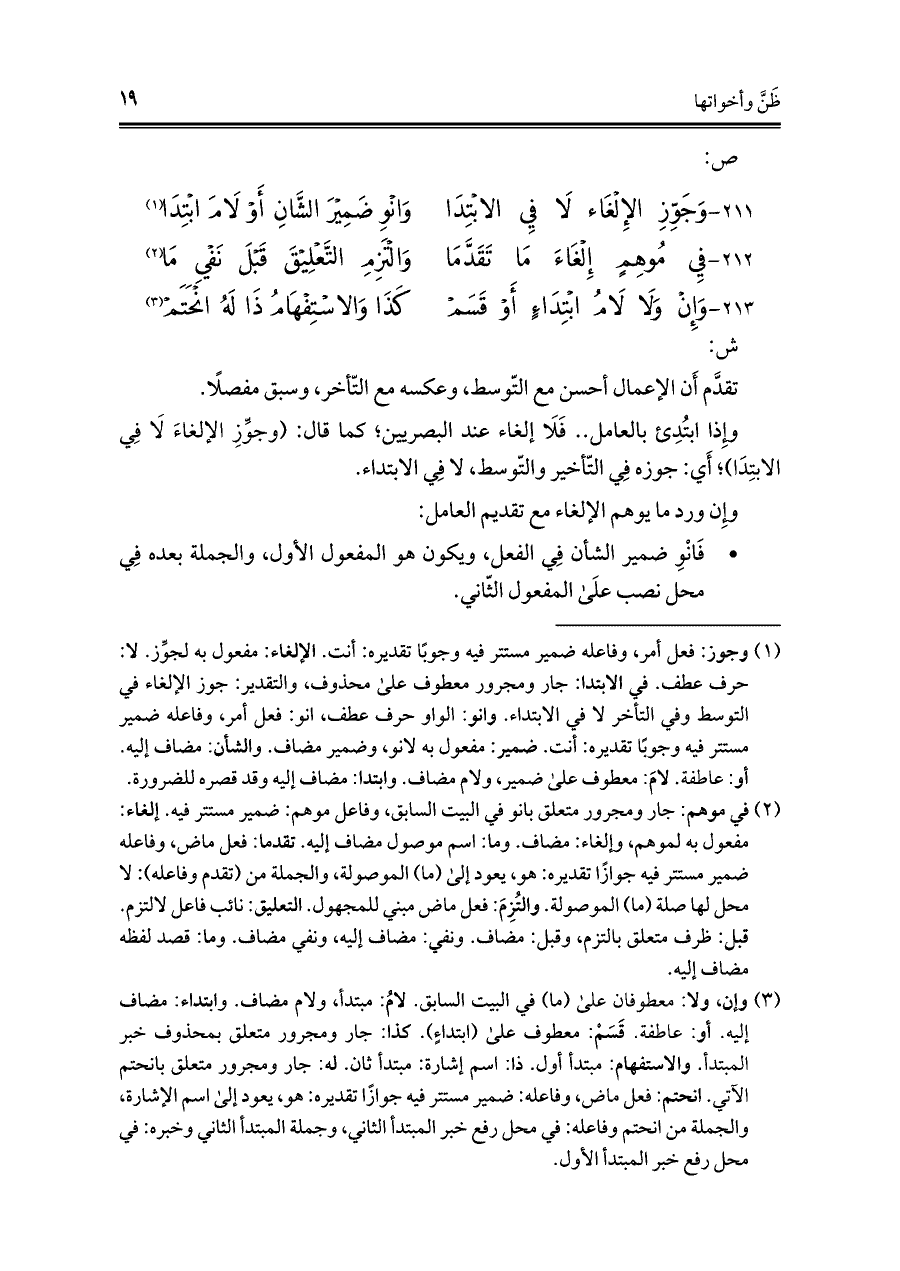 ظَنَّ وأخواتها ١٩
ص:
٢١١-وَجَوِّزِ الإِلْغَاء لَا فِي الابْتِدَا وَانْوِ ضَمِيْرَ الشَّانِ أَوْ لَامَ ابْتِدَا(١)
٢١٢-فِي مُوهِمٍ إِلْغَاءَ مَا تَقَدَّمَا وَالْتَزِمِ التَّعْلِيْقَ قَبْلَ نَفْيِ مَا(٢)
٢١٣-وَإِنْ وَلَا لَامُ ابْتِدَاءٍ أَوْ قَسَمْ كَذَا وَالاسْتِفْهَامُ ذَا لَهُ انْحَتَمْ(٣)
ش:
تقدَّم أَن الإعمال أحسن مع التّوسط، وعكسه مع التّأخر، وسبق مفصلًا.
وإِذا ابتُدِئ بالعامل.. فَلَا إلغاء عند البصريين؛ كما قال: (وجوِّزِ الإلغاءَ لَا فِي
الابتِدَا)؛ أَي: جوزه فِي التّأخير والتّوسط، لا فِي الابتداء.
وإِن ورد ما يوهم الإلغاء مع تقديم العامل:
• فَانْوِ ضمير الشأن فِي الفعل، ويكون هو المفعول الأول، والجملة بعده فِي
محل نصب علَىٰ المفعول الثّاني.
(١) وجوز: فعل أمر، وفاعله ضمير مستتر فيه وجوبًا تقديره: أنت. الإلغاء: مفعول به لجوِّز. لا:
حرف عطف. في الابتدا: جار ومجرور معطوف علىٰ محذوف، والتقدير: جوز الإلغاء في
التوسط وفي التأخر لا في الابتداء. وانو: الواو حرف عطف، انو: فعل أمر، وفاعله ضمير
مستتر فيه وجوبًا تقديره: أنت. ضمير: مفعول به لانو، وضمير مضاف. والشأن: مضاف إليه.
أو: عاطفة. لامَ: معطوف علىٰ ضمير، ولام مضاف. وابتدا: مضاف إليه وقد قصره للضرورة.
(٢) في موهم: جار ومجرور متعلق بانو في البيت السابق، وفاعل موهم: ضمير مستتر فيه. إلغاء:
مفعول به لموهم، وإلغاء: مضاف. وما: اسم موصول مضاف إليه. تقدما: فعل ماض، وفاعله
ضمير مستتر فيه جوازًا تقديره: هو، يعود إلىٰ (ما) الموصولة، والجملة من (تقدم وفاعله): لا
محل لها صلة (ما) الموصولة. والتُزِمَ: فعل ماض مبني للمجهول. التعليق: نائب فاعل لالتزم.
قبل: ظرف متعلق بالتزم، وقبل: مضاف. ونفي: مضاف إليه، ونفي مضاف. وما: قصد لفظه
مضاف إليه.
(٣) وإن، ولا: معطوفان علىٰ (ما) في البيت السابق. لامُ: مبتدأ، ولام مضاف. وابتداء: مضاف
إليه. أو: عاطفة. قَسَمْ: معطوف علىٰ (ابتداءٍ). كذا: جار ومجرور متعلق بمحذوف خبر
المبتدأ. والاستفهام: مبتدأ أول. ذا: اسم إشارة: مبتدأ ثان. له: جار ومجرور متعلق بانحتم
الآتي. انحتم: فعل ماض، وفاعله: ضمير مستتر فيه جوازًا تقديره: هو، يعود إلىٰ اسم الإشارة،
والجملة من انحتم وفاعله: في محل رفع خبر المبتدأ الثاني، وجملة المبتدأ الثاني وخبره: في
محل رفع خبر المبتدأ الأول.